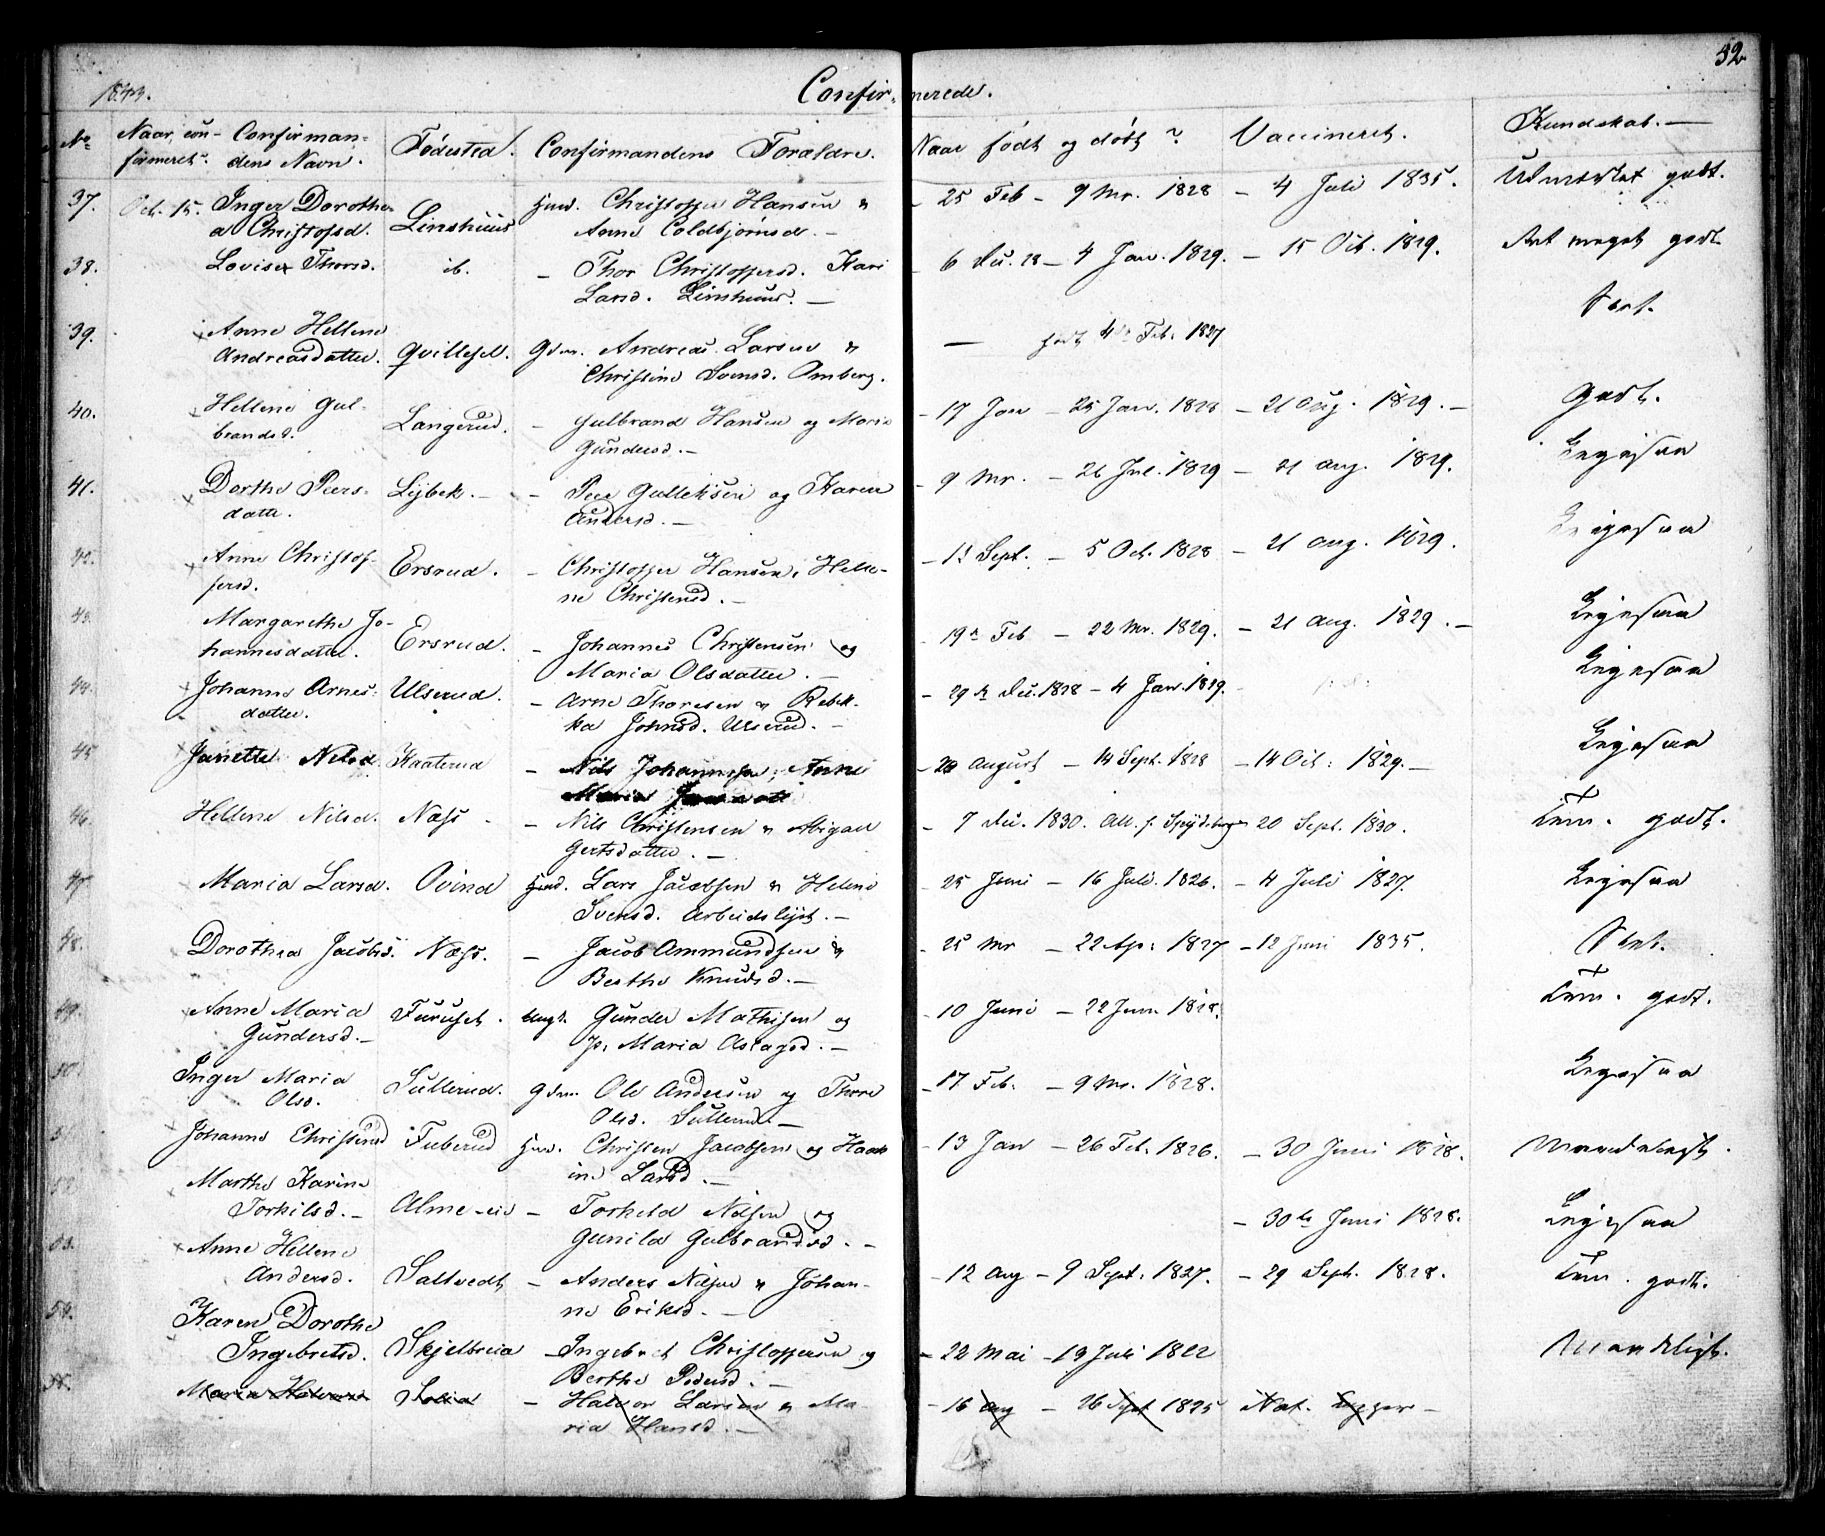 52
1843.
Confirmerede.
No Naar confirmeret. Confirmandens Navn. Födested. Confirmandens Forældre. Naar födt og döbt? Vaccineret. Kundskab. —
37. Oct. 15. Inger Dorothea Christofsd. Linshuus Huusm. Christopher Hansen & Anne Coldbjörnsd. — 25 Feb — 9 Mr. 1828 — 4 Juli 1835. Udmærket godt.
38. Lovise Thorsd. ib. — Thor Christoffersd. Kari Larsd. Linshuus. — 6 Dec. 28 — 4 Jan. 1829. — 15 Oct. 1829. meget godt
39. Anne Hellene Andreasdatter. Qvillesel. Gdm. Andreas Larsen & Christine Svensd. Omberg. — födt 4de Feb. 1827
40. Hellene Gulbrandsd. Langerud. — Gulbrand Hansen og Maria Gundersd. — 17 Jan — 25 Jan. 1828 — 21 Aug. 1829. — Godt.
41. Dorthe Peersdatter. Lybek. — Peer Gulleksen og Karen Andersd. — 9 Mr. — 26 Jul. 1829 — 21 Aug. 1829. Ligesaa
42. Anne Christoffersd. Ersrud. — Christoffer Hansen, Hellene Christensd. — 11 Sept. — 5 Oct. 1828 — 21 Aug. 1829. Ligesaa
43. Margarethe Johannesdatter. Ersrud. — Johannes Christensen og Maria Olsdatter. — 19de Feb — 22 Mr. 1829. — 21 Aug. 1829. — Ligesaa
44. Johanne Arnesdatter. Ulserud. — Arne Thoresen & Rebekka Johnsd. Ulserud. — 29de Dec. 1828 — 4 Jan. 1829. Ligesaa
45 Janette Nilsd. Kaaterud — Nils Johannesen, Anne Maria — 28 August — 14 Sept. 1828 — 14 Oct. 1829. — Ligesaa
46. Hellene Nilsd. Næss — Nils Christensen & Abigael Gertsdatter. — 7 Dec. 1830. Att. f. Spydeberg 20 Sept. 1830. Tem. godt.
47. Maria Larsd. Ovind Huusm. Lars Jacobsen & Helene Svensd. Arbeidslyst. — 25 Juni — 16 Juli. 1826. — 4 Juli 1827. Ligesaa
48. Dorothea Jacobsd. Næss. — Jacob Ammundsen & Berthe Knudsd. — 25 Mr — 22 Ap. 1827 — 12 Juni 1835.
49. Anne Maria Gundersd. — Furuset. Ungk. Gunder Mathisen og P. Maria Aslagsd. — 10 Juni — 22 Jun. 1828. Tem. godt.
50. Inger Maria Olsd. Sullerud. Gdm. Ole Andersen og Thore Olsd. Sullerud — 17 Feb. — 9 Mr. 1828. Ligesaa
51. Johanne Christensd Tuberud Huusm. Christen Jacobsen og Haakine Larsd. — 13 Jan — 26 Feb. 1826. — 30 Juni 1828. Maadeligt.
52. Marthe Karine Torkilsd. — Alme-eie — Torkeld Nilsen og Gunild Gulbrandsd. — 30te Juni 1828. Ligesaa
53. Anne Hellene Andersd. Saltvedt — Anders Nilsen & Johanne Eriksd. — 12 Aug — 9 Sept. 1827. — 29 Sept. 1828. Tem. godt.
54. Karen Dorothe Ingebretsd. Skjelbreia — Ingebret Christoffersen og Berthe Pedersd. — 22 Mai — 19 Juli 1822 Maadeligt.
55. Maria Halvorsd Solia — Halvor Larsen & Maria Hansd. — 16 Aug — 26 Sept 1825 Nat. Kopper —